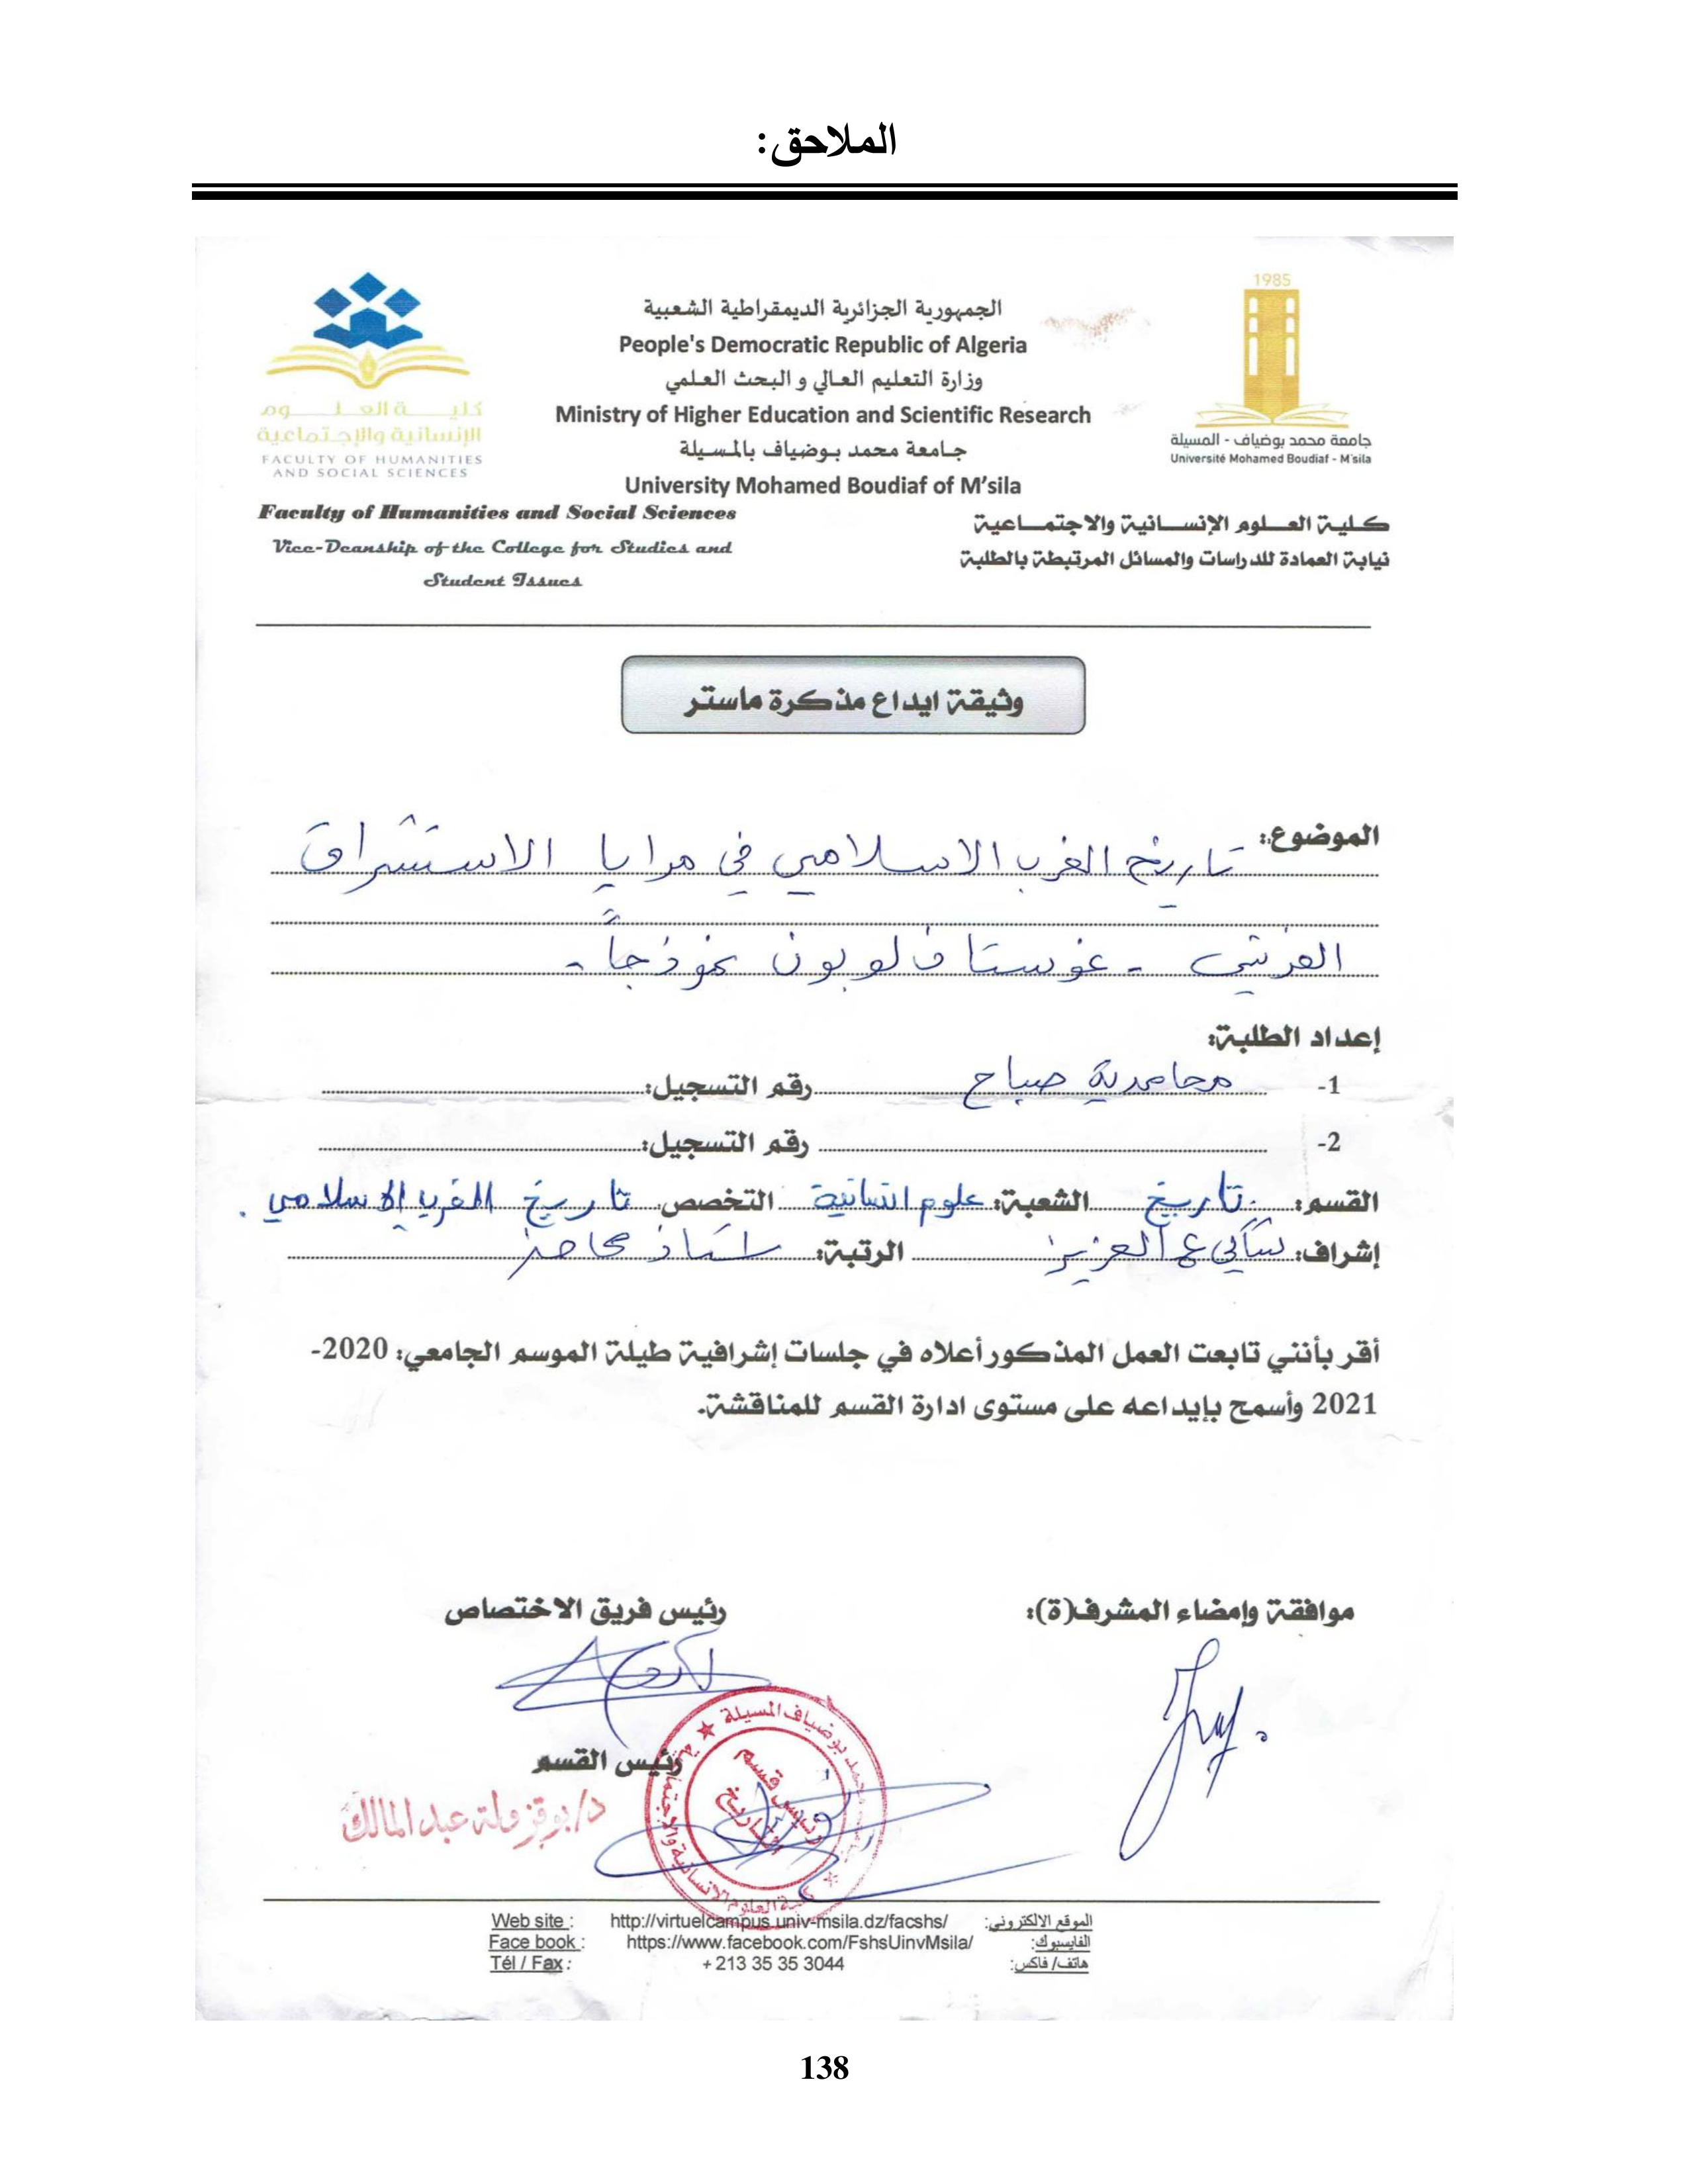 الملاحق:
1985
الجمهورية الجزائرية الديمقراطية الشعبية
People's Democratic Republic of Algeria
وزارة التعليم العالي و البحث العلمي
Ministry of Higher Education and Scientific Research
جامعة محمد بوضياف بالمسيلة
University Mohamed Boudiaf of M'sila
جامعة محمد بوضياف - المسيلة
Université Mohamed Boudiaf - M'sila
كلية العلوم
الإنسانية والإجتماعية
FACULTY OF HUMANITIES
AND SOCIAL SCIENCES
كلية العلوم الإنسانية والاجتماعية
نيابة العمادة للدراسات والمسائل المرتبطة بالطلبة
Faculty of Humanities and Social Sciences
Vice-Deanship of the College for Studies and
Student Issues
وثيقة ايداع مذكرة ماستر
الموضوع: تاريخ الغرب الاسلامي في مرايا الاستشراق
الفرنسي - غوستاف لوبون نموذجاً -
إعداد الطلبة:
1- محامدية صباح رقم التسجيل:
2- رقم التسجيل:
القسم: تاريخ الشعبة: علوم انسانية التخصص تاريخ الغرب الاسلامي.
إشراف: العزيز الرتبة: استاذ محاضر
أقر بأنني تابعت العمل المذكور أعلاه في جلسات إشرافية طيلة الموسم الجامعي: 2020-
2021 وأسمح بإيداعه على مستوى ادارة القسم للمناقشة.
موافقة وإمضاء المشرف(ة): رئيس فريق الاختصاص
رئيس القسم
د/بوقزولة عبد المالك
رئيس قسم
التاريخ
Web site : http://virtuelcampus.univ-msila.dz/facshs/ الموقع الالكتروني:
Face book : https://www.facebook.com/FshsUinvMsila/ الفايسبوك:
Tél / Fax : + 213 35 35 3044 هاتف/ فاكس:
138